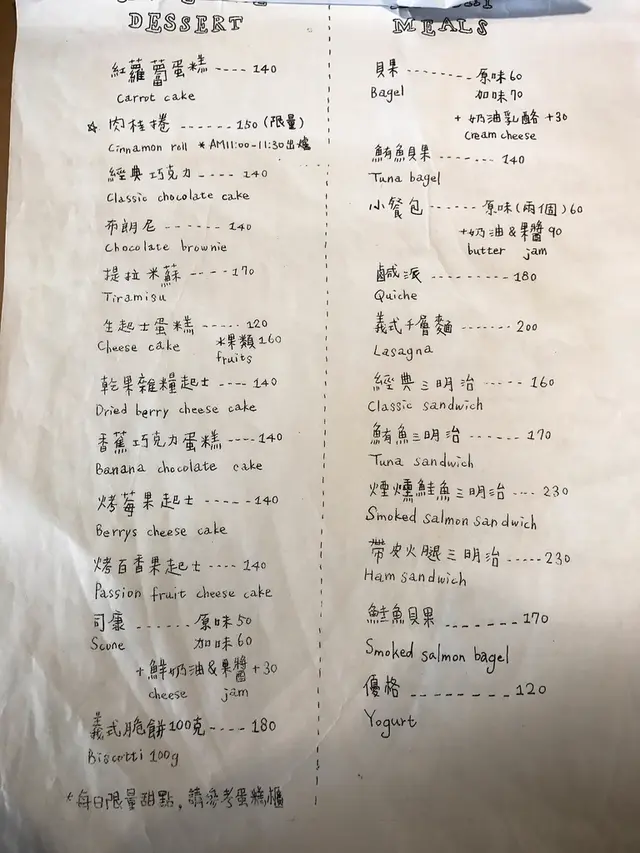 DESSERT
紅蘿蔔蛋糕 ---- 140
Carrot cake
☆ 肉桂捲 ------ 150 (限量)
Cinnamon roll * AM11:00-11:30出爐
經典巧克力 ---- 140
Classic chocolate cake
布朗尼 ------ 140
Chocolate brownie
提拉米蘇 ----- 170
Tiramisu
生起士蛋糕 ----- 120
Cheese cake 水果類160
fruits
乾果雜糧起士 ---- 140
Dried berry cheese cake
香蕉巧克力蛋糕 ---- 140
Banana chocolate cake
烤莓果起士 ------ 140
Berrys cheese cake
烤百香果起士 ---- 140
Passion fruit cheese cake
司康 ------- 原味50
Scone 加味60
+鮮奶油&果醬+30
cheese jam
義式脆餅100克 ---- 180
Biscotti 100g
*每日限量甜點,請參考蛋糕櫃
MEALS
貝果 -------- 原味60
Bagel 加味70
+ 奶油乳酪 +30
Cream cheese
鮪魚貝果 ------ 140
Tuna bagel
小餐包 ------ 原味(兩個)60
+奶油&果醬90
butter jam
鹹派 --------- 180
Quiche
義式千層麵 ------- 200
Lasagna
經典三明治 ----- 160
Classic sandwich
鮪魚三明治 ------ 170
Tuna sandwich
煙燻鮭魚三明治 --- 230
Smoked salmon sandwich
帶皮火腿三明治 ----- 230
Ham sandwich
鮭魚貝果 ------- 170
Smoked salmon bagel
優格 --------- 120
Yogurt